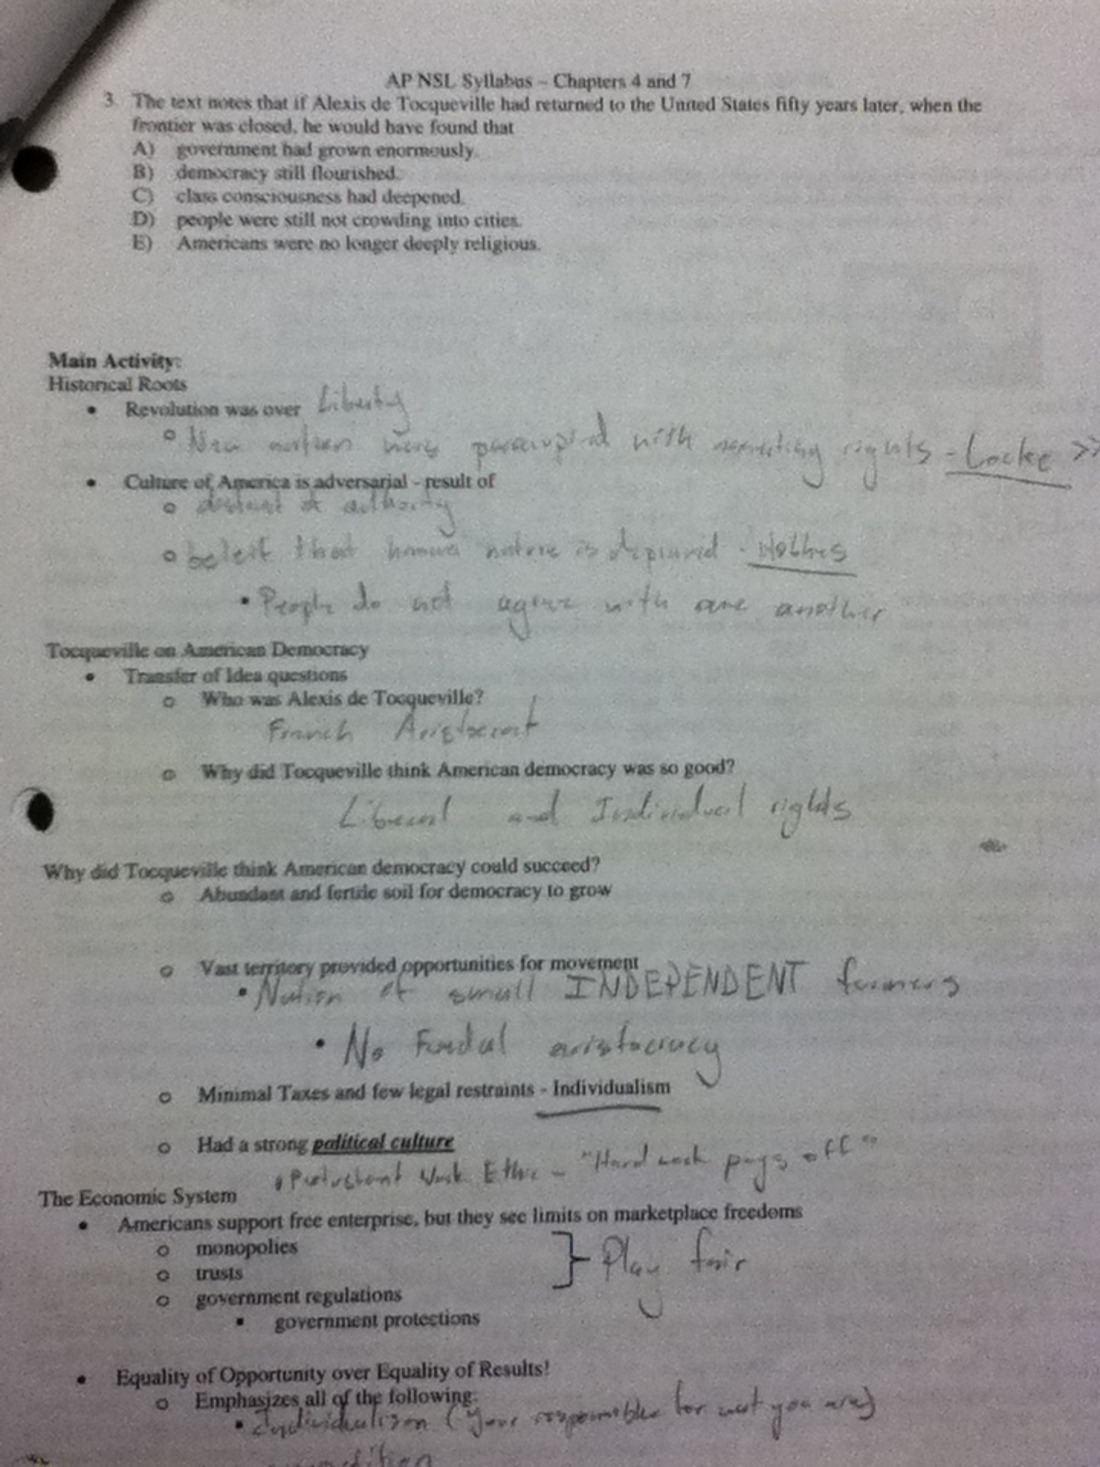 AP NSL Syllabus – Chapters 4 and 7
3. The text notes that if Alexis de Tocqueville had returned to the United States fifty years later, when the
frontier was closed, he would have found that
A) government had grown enormously.
B) democracy still flourished.
C) class consciousness had deepened.
D) people were still not crowding into cities.
E) Americans were no longer deeply religious.
Main Activity:
Historical Roots
• Revolution was over Liberty
o New nation were with rights - Locke >>
• Culture of America is adversarial - result of
o of authority
o beleif that human nature is depravid - Hobbes
• People do not agree with one another
Tocqueville on American Democracy
• Transfer of Idea questions
o Who was Alexis de Tocqueville?
French Aristocrat
o Why did Tocqueville think American democracy was so good?
Liberal and Individual rights
Why did Tocqueville think American democracy could succeed?
o Abundant and fertile soil for democracy to grow
o Vast territory provided opportunities for movement
• Nation of small INDEPENDENT farmers
• No Feudal aristocracy
o Minimal Taxes and few legal restraints - Individualism
o Had a strong political culture
• Protestant Work Ethic - "Hard work pays off"
The Economic System
• Americans support free enterprise, but they see limits on marketplace freedoms
o monopolies
o trusts } Play fair
o government regulations
▪ government protections
• Equality of Opportunity over Equality of Results!
o Emphasizes all of the following:
• Individualism (your responsible for you are)